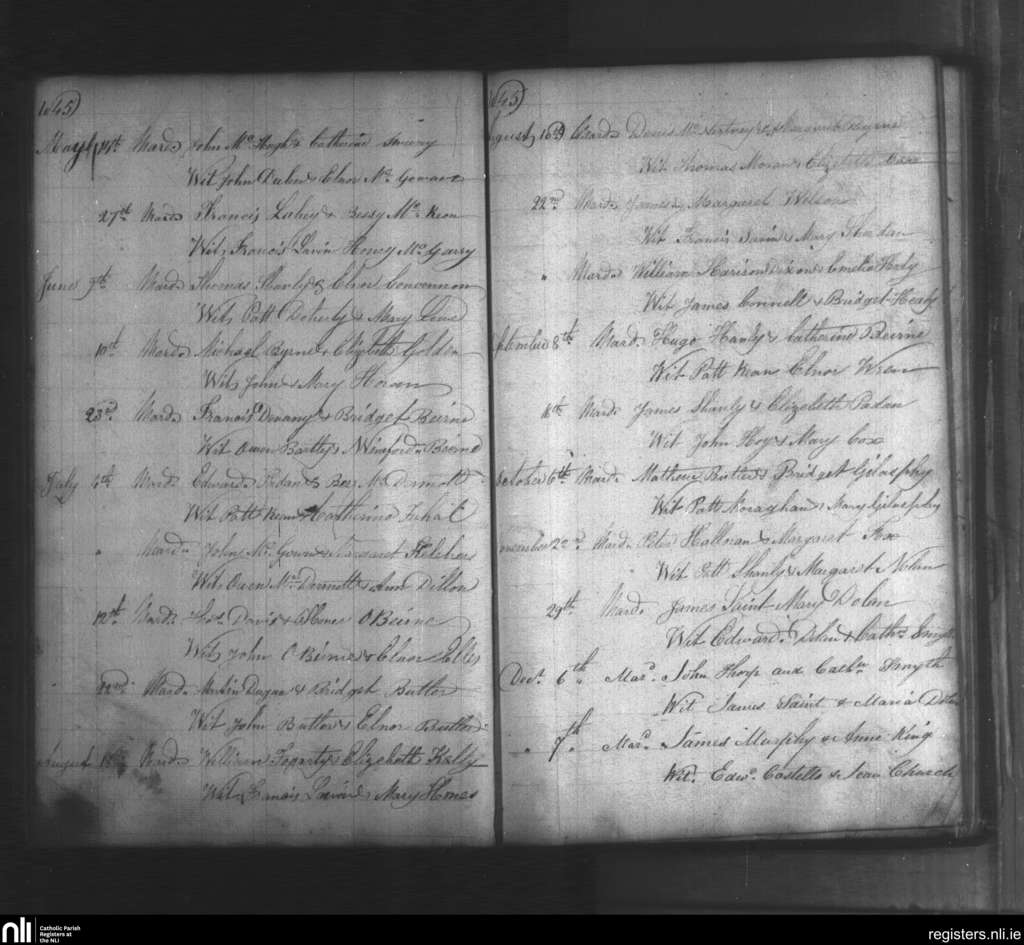 1845)
May 14th Mard. John Mc Hugh & Catherine
Wit John & Elnor Mc Gowan
27th Mard. Francis Lahey & Bessy Mc Keon
Wit, Francis Lavin Honey Mc Garry
June 9th Mard. Thomas Shanly & Elnor
Wit, Patt Doherty & Mary
10th Mard. Michael Byrne & Elizabeth Golden
Wit, John & Mary Horan
23rd Mard. Francis & Bridget Beirne
Wit Owen Bartly & Winford Beirne
July 6th Mard. Edward Padan & Bee Mc Dermott
Wit Patt Kean & Catherine
" Mard. John Mc Gowan & Margaret Kelcher
Wit Owen Mc Dermott & Ann Dillon
12th Mard. Thos. Davis & O Beirne
Wit, John O Beirne & Elnor
22nd Mard. Martin Dugan & Bridget Butler
Wit John Butler & Elnor Butler
August Mard. William Fogarty & Elizabeth Kelly
Wit Francis & Mary Homes
1845)
August 16th Mard. Denis & Byrne
Wit Thomas Moran & Elizabeth Cox
22nd Mard. James & Margaret Wilson
Wit Francis Lavin & Mary
" Mard. William Harison Dixon & Healy
Wit James Connell & Bridget Healy
September 8th Mard. Hugo Hanly & Catherine Beirne
Wit Patt Kean Elnor Wren
Mard. James Shanly & Elizabeth Padan
Wit John Hoy & Mary Cox
October 6th Mard. Mathew Butler & Bridget Gilasphy
Wit Patt Monaghan & Mary Gilasphy
November 22nd Mard. Peter Hallnan & Margaret Fox
Wit Patt Shanly & Margaret Nolan
29th Mard. James Saint Mary Dolan
Wit Edward Dolan & Cathn. Smyth
Decr. 6th Mard. John Thorp and Cathn. Smyth
Wit James Saint & Maria Dolan
" 7th Mard. James Murphy & Anne King
Wit. Edwd. Costello & Jean Church
nli Catholic Parish
Registers at
the NLI
registers.nli.ie